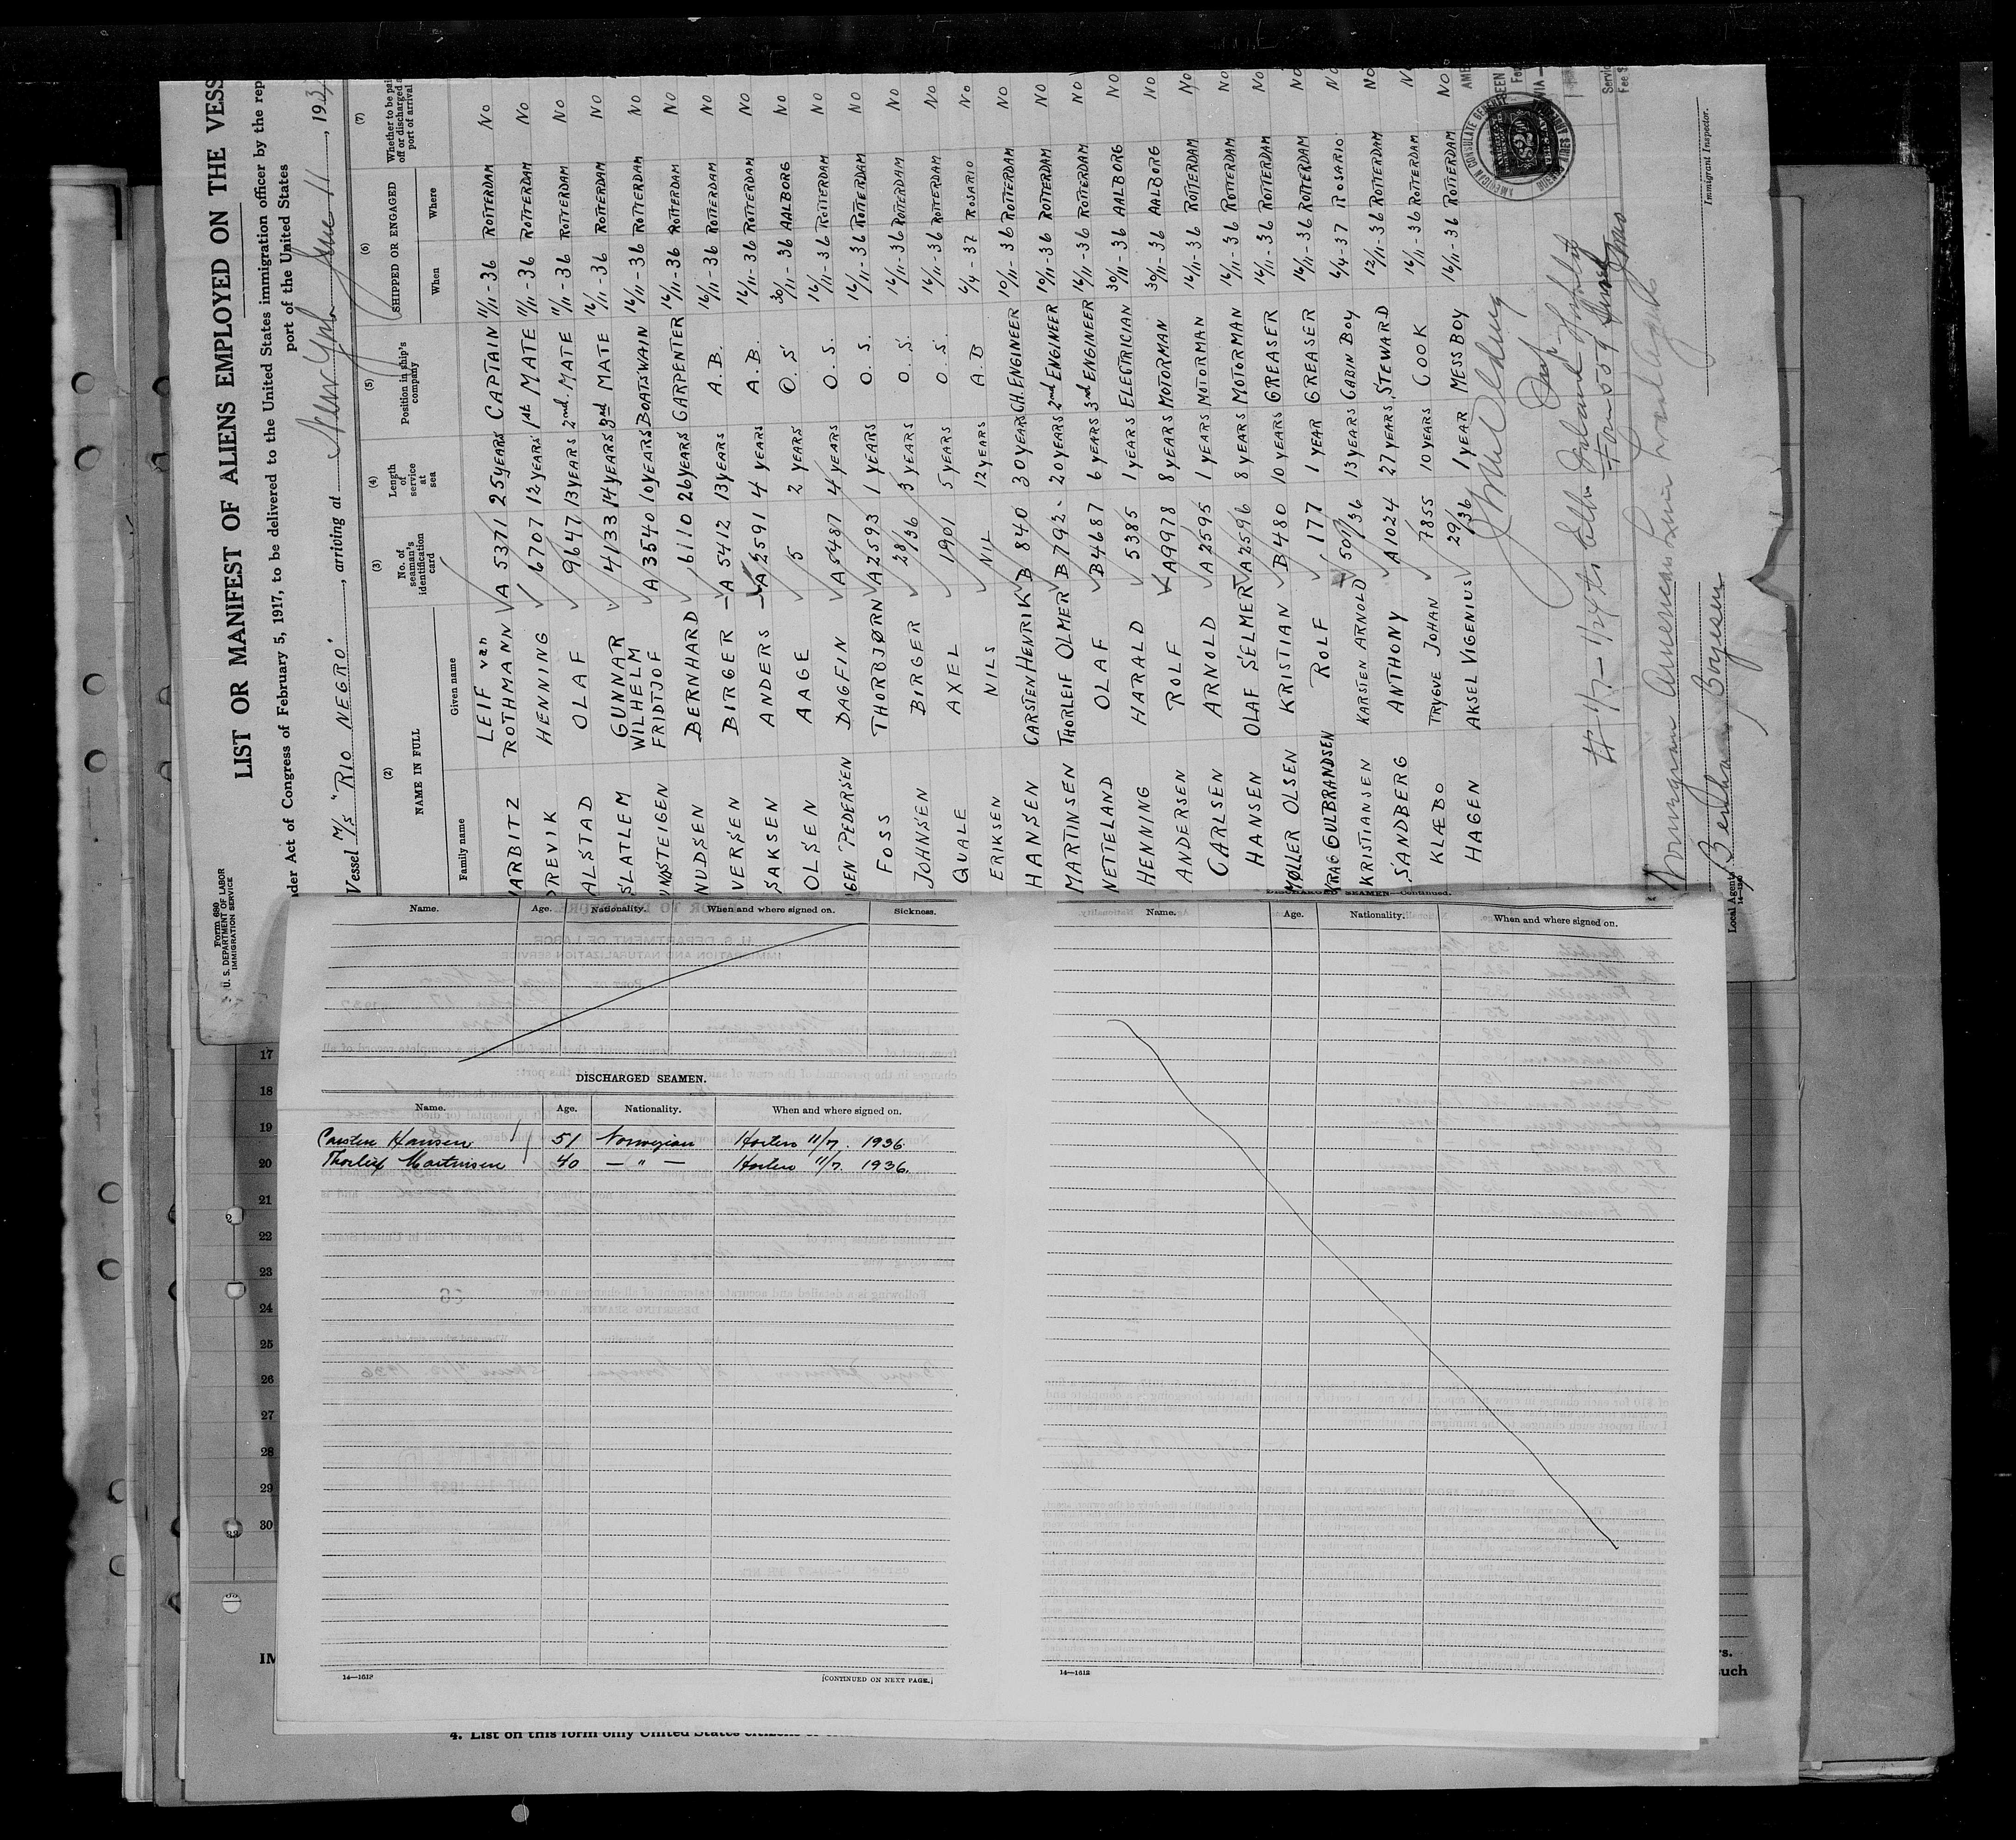 LIST OR MANIFEST OF ALIENS EMPLOYED ON THE VESS
Form 680
U. S. DEPARTMENT OF LABOR
IMMIGRATION SERVICE
nder Act of Congress of February 5, 1917, to be delivered to the United States immigration officer by the rep
port of the United States
Vessel M/S "RIO NEGRO", arriving at New York June 11, 193
(2) (3) (4) (5) (6) (7)
NAME IN FULL No. of seaman's identification card Length of service at sea Position in ship's company SHIPPED OR ENGAGED Whether to be pai off or discharged a port of arrival
Family name Given name When Where
ARBITZ LEIF van ROTHMANN A 5371 25 years CAPTAIN 11/11-36 ROTTERDAM NO
REVIK HENNING 6707 12 years 1st MATE 11/11-36 ROTTERDAM NO
ALSTAD OLAF 9647 13 years 2nd. MATE 11/11-36 ROTTERDAM NO
SLATLEM GUNNAR WILHELM 4133 14 years 3rd MATE 16/11-36 ROTTERDAM NO
UNDSTEIGEN FRIDTJOF A 3540 10 years BOATSWAIN 16/11-36 ROTTERDAM NO
NUDSEN BERNHARD 6110 26 years CARPENTER 16/11-36 ROTTERDAM NO
VERSEN BIRGER A 5412 13 years A.B. 16/11-36 ROTTERDAM NO
SAKSEN ANDERS A 2591 4 years A.B. 16/11-36 ROTTERDAM NO
OLSEN AAGE 5 2 years O.S. 30/11-36 AALBORG NO
GEN PEDERSEN DAGFIN A 5487 4 years O.S. 16/11-36 ROTTERDAM NO
FOSS THORBJØRN A 2593 1 years O.S. 16/11-36 ROTTERDAM NO
JOHNSEN BIRGER 28/36 3 years O.S. 16/11-36 ROTTERDAM NO
QUALE AXEL 1901 5 years O.S. 16/11-36 ROTTERDAM NO
ERIKSEN NILS NIL 12 years A.B 6/4-37 ROSARIO NO
HANSEN CARSTEN HENRIK B 840 30 years CH. ENGINEER 10/11-36 ROTTERDAM NO
MARTINSEN THORLEIF OLMER B 792 20 years 2nd ENGINEER 10/11-36 ROTTERDAM NO
NETTELAND OLAF B 4687 6 years 3rd ENGINEER 16/11-36 ROTTERDAM NO
HENNING HARALD 5385 1 years ELECTRICIAN 30/11-36 AALBORG NO
ANDERSEN ROLF A 9978 8 years MOTORMAN 30/11-36 AALBORG NO
CARLSEN ARNOLD A 2595 1 years MOTORMAN 16/11-36 ROTTERDAM NO
HANSEN OLAF SELMER A 2596 8 years MOTORMAN 16/11-36 ROTTERDAM NO
MØLLER OLSEN KRISTIAN B 480 10 years GREASER 16/11-36 ROTTERDAM NO
KRAG GULBRANDSEN ROLF 177 1 year GREASER 16/11-36 ROTTERDAM NO
KRISTIANSEN KARSTEN ARNOLD 501/36 13 years CABIN BOY 6/4-37 ROSARIO NO
SANDBERG ANTHONY A 1024 27 years STEWARD 12/11-36 ROTTERDAM NO
KLÆBO TRYGVE JOHAN 7855 10 years COOK 16/11-36 ROTTERDAM NO
HAGEN AKSEL VIGENIUS 29/36 1 year MESS BOY 16/11-36 ROTTERDAM NO
AMERICAN CONSULATE GENERAL
Norwegian American Line
Local Agents
14-1240
Immigrant Inspector.
Name. Age. Nationality. When and where signed on. Sickness.
DISCHARGED SEAMEN.
Name. Age. Nationality. When and where signed on.
Carsten Hansen 51 Norwegian Horten 11/7. 1936
Thorleif Martinsen 40 — " — Horten 11/7. 1936.
14—1612
[CONTINUED ON NEXT PAGE.]
DISCHARGED SEAMEN—Continued.
Name. Age. Nationality. When and where signed on.
14—1612
17
18
19
20
21
22
23
24
25
26
27
28
29
30
IM
rs.
uch
4. List on this form only United States citizens